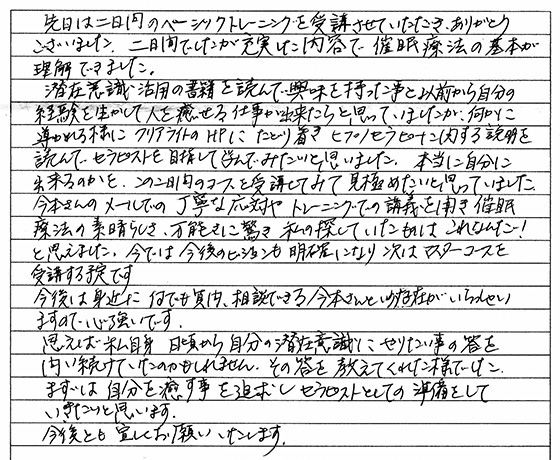 先日は二日間のベーシックトレーニングを受講させていただき、ありがとう
ございました。二日間でしたが充実した内容で、催眠療法の基本が
理解できました。
潜在意識活用の書籍を読んで興味を持った事と以前から自分の
経験を生かして人を癒せる仕事が出来たらと思っていましたが、何かに
導かれる様に クリアライトのHPに たどり着き ヒプノセラピーに関する説明を
読んで、セラピストを目指して学んでみたいと思いました。本当に自分に
出来るのかと、この二日間のコースを受講してみて見極めたいと思っていました。
今本さんのメールでの丁寧な応対や トレーニングでの講義を聞き 催眠
療法の素晴らしさ、万能さに驚き 私の探していたものは これなんだ!
と思えました。今では 今後のビジョンも 明確になり 次は マスターコースを
受講する予定です
今後は身近に 何でも質問、相談できる今本さんという存在がいらっしゃい
ますので心強いです。
思えば 私自身 日頃から 自分の潜在意識に やりたい事の答を
問い続けていたのかもしれません。その答を 教えてくれた様でした。
まずは 自分を癒す事を追求し セラピストとしての準備をして
いきたいと思います。
今後とも 宜しくお願いいたします。